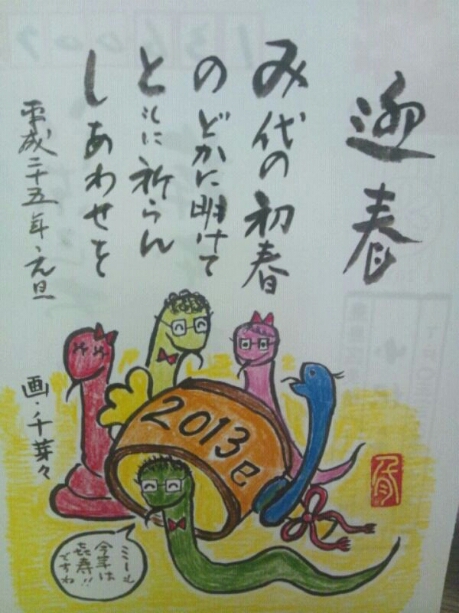 迎春
み代の初春
のどかに明けて
ともに祈らん
しあわせを
平成二十五年・元旦
画・千芽々
2013e
ミーも
今年は
喜寿!!
ですわ